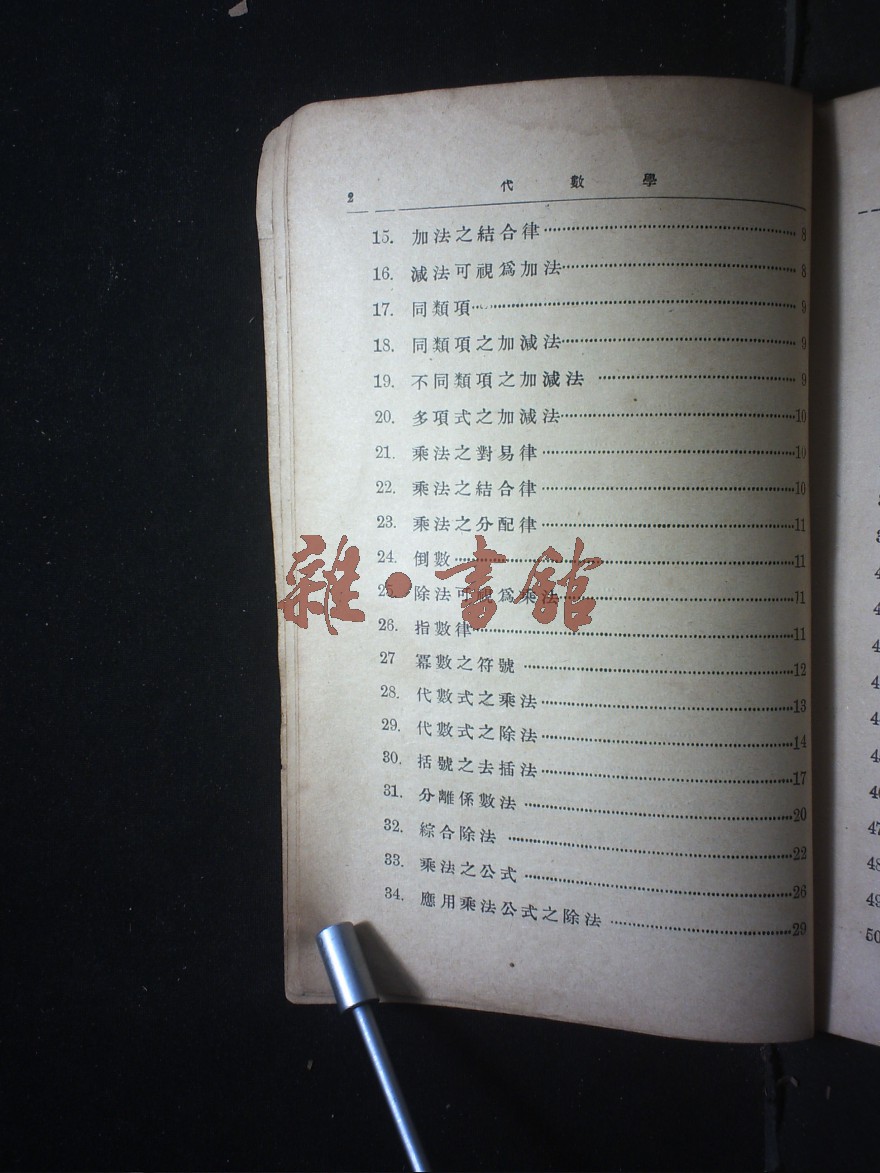 2 代數學
15. 加法之結合律 8
16. 減法可視爲加法 8
17. 同類項 9
18. 同類項之加減法 9
19. 不同類項之加減法 9
20. 多項式之加減法 10
21. 乘法之對易律 10
22. 乘法之結合律 10
23. 乘法之分配律 11
24. 倒數 11
25. 除法可視爲乘法 11
26. 指數律 11
27 冪數之符號 12
28. 代數式之乘法 13
29. 代數式之除法 14
30. 括號之去插法 17
31. 分離係數法 20
32. 綜合除法 22
33. 乘法之公式 26
34. 應用乘法公式之除法 29
雜·書館
47
48
49
50